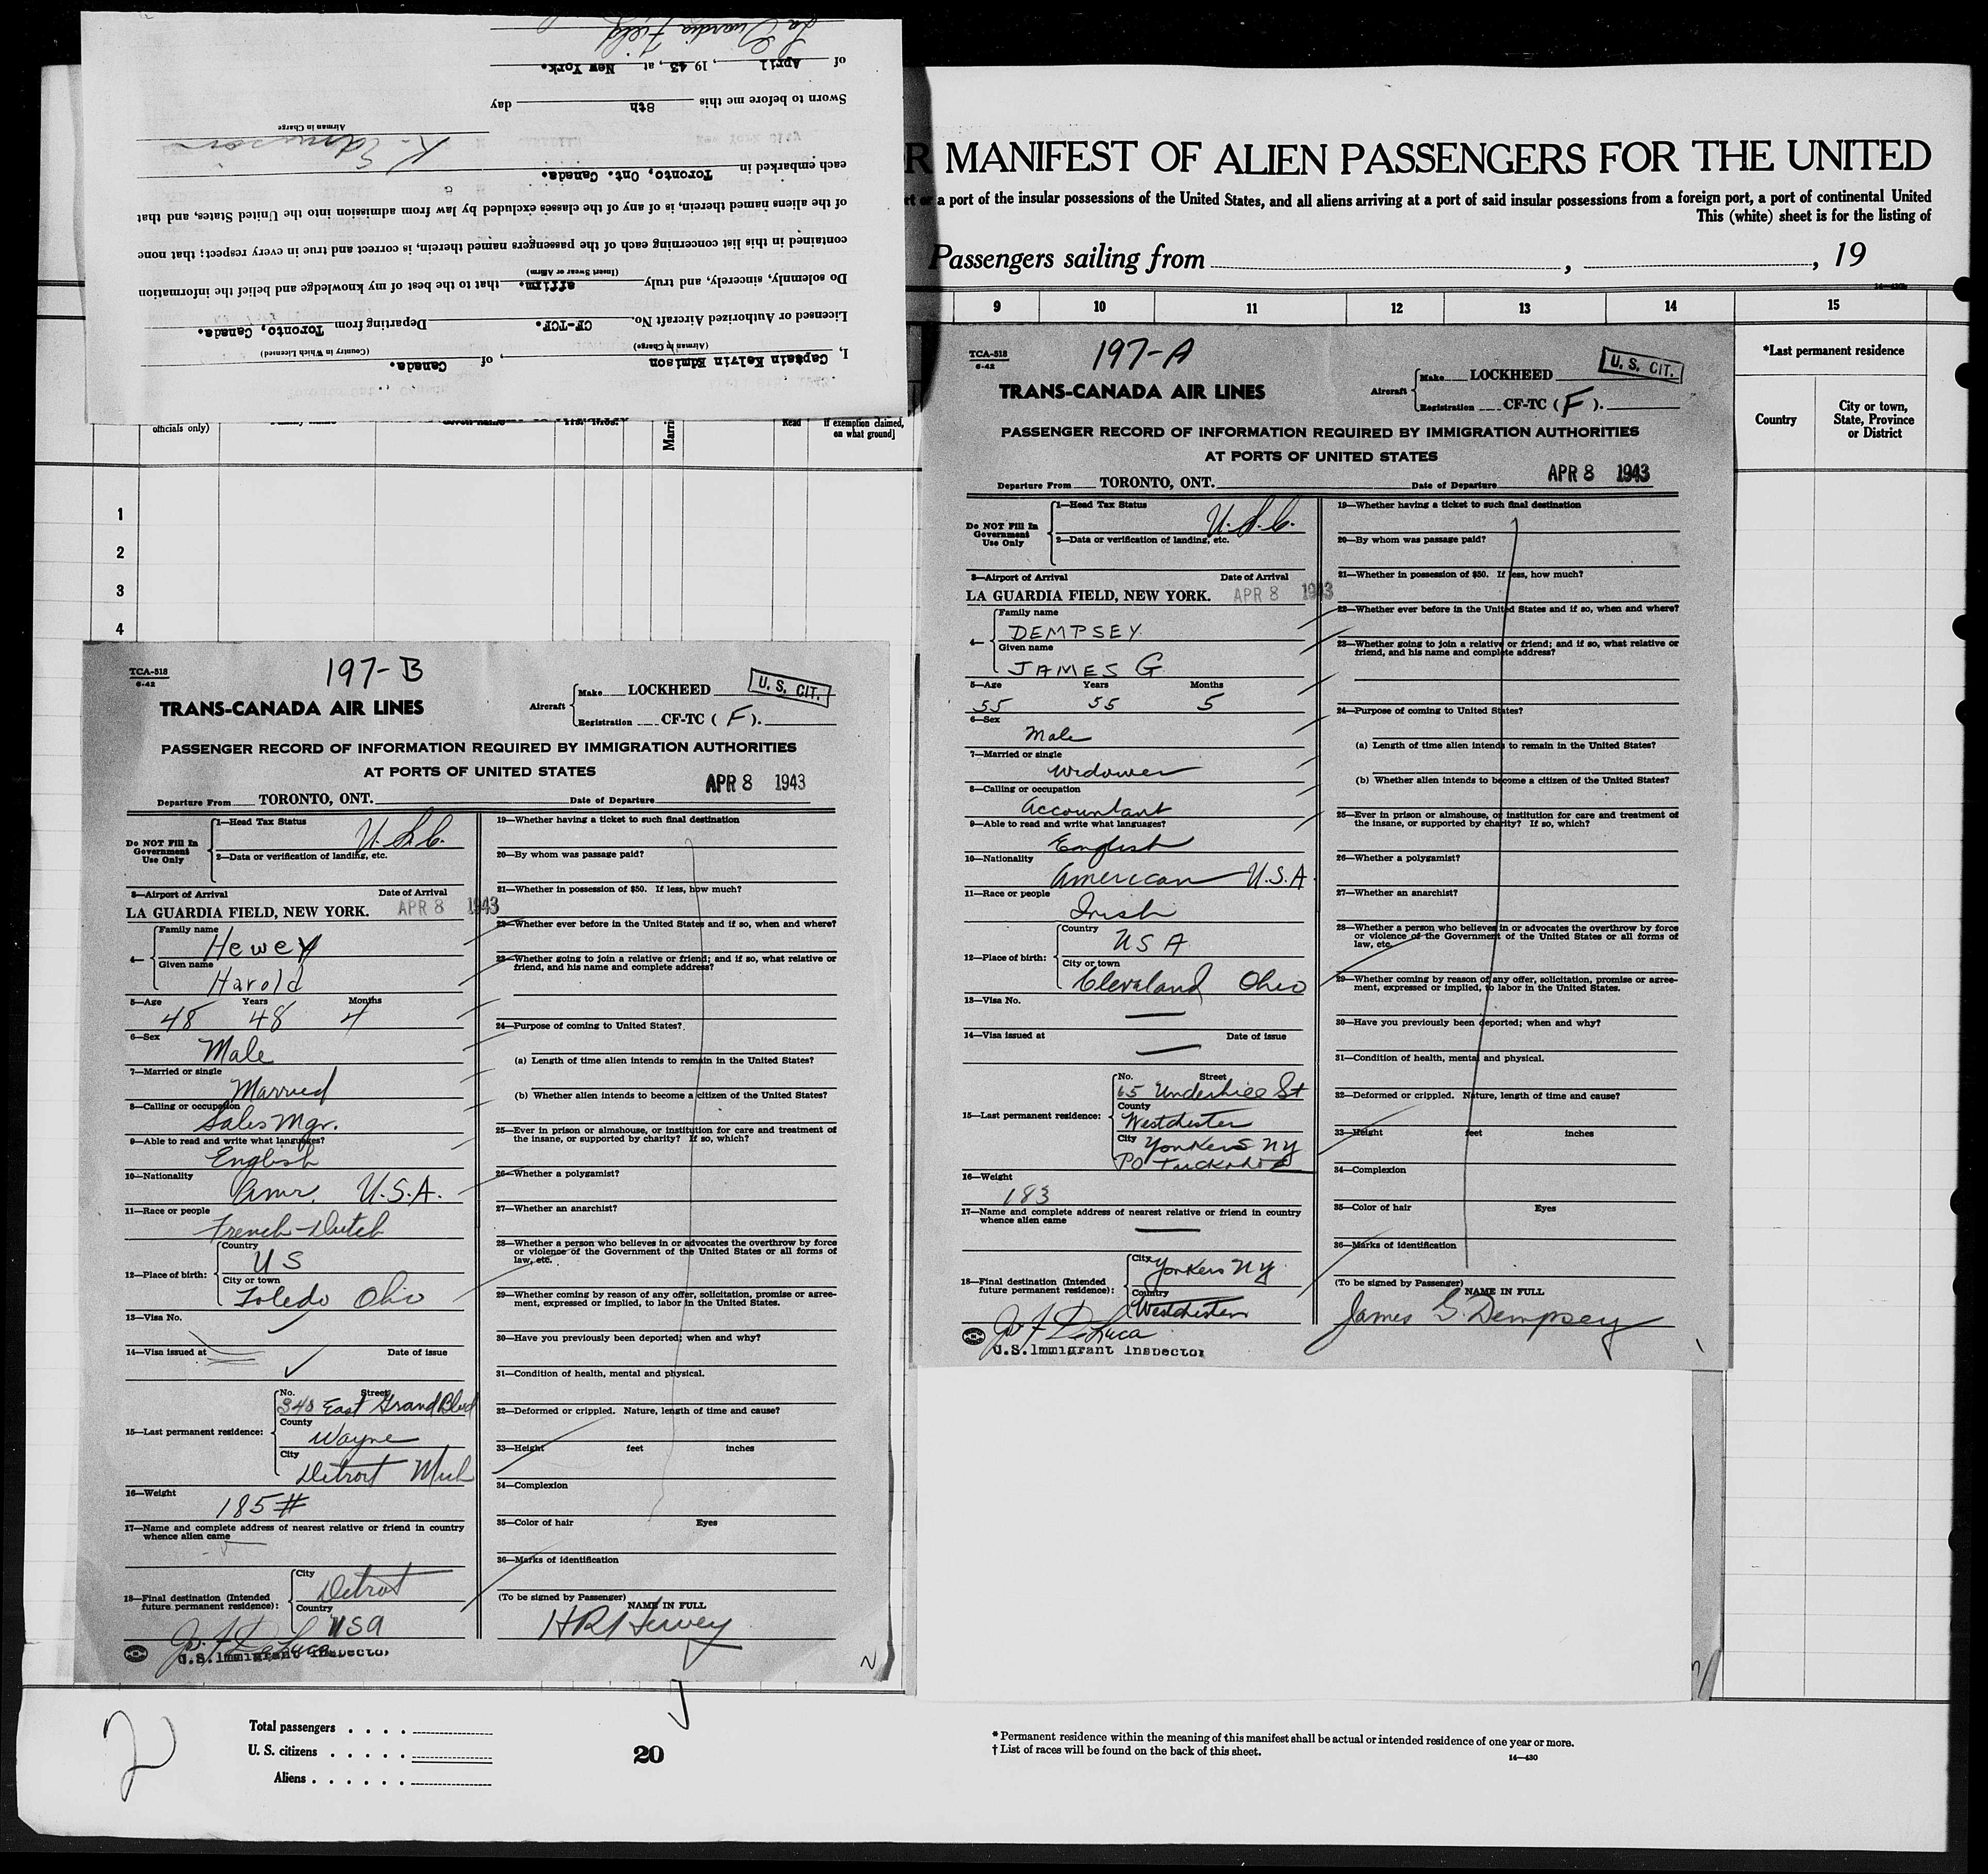 I, Captain Kelvin Edmison, of Canada.
(Airman in Charge) (Country in Which Licensed)
Licensed or Authorized Aircraft No. CF-TCF. Departing from Toronto, Canada.
Do solemnly, sincerely, and truly affirm. that to the best of my knowledge and belief the information
(Insert Swear or Affirm)
contained in this list concerning each of the passengers named therein, is correct and true in every respect; that none
of the aliens named therein, is of any of the classes excluded by law from admission into the United States, and that
each embarked in Toronto, Ont. Canada.
K. Edmison
Airman in Charge
Sworn to before me this 8th day
of April, 1943, at New York.
La Guardia Field
R MANIFEST OF ALIEN PASSENGERS FOR THE UNITED
or a port of the insular possessions of the United States, and all aliens arriving at a port of said insular possessions from a foreign port, a port of continental United
This (white) sheet is for the listing of
Passengers sailing from , , 19
9 10 11 12 13 14 15
*Last permanent residence
Country
City or town, State, Province or District
officials only)
Read
if exemption claimed, on what ground]
1
2
3
4
TCA-518
6-42
197-B
TRANS-CANADA AIR LINES
Aircraft Make LOCKHEED
Registration CF-TC ( F ).
U. S. CIT.
PASSENGER RECORD OF INFORMATION REQUIRED BY IMMIGRATION AUTHORITIES
AT PORTS OF UNITED STATES
Departure From TORONTO, ONT. Date of Departure APR 8 1943
Do NOT Fill In Government Use Only
1—Head Tax Status U.S.C.
2—Data or verification of landing, etc.
3—Airport of Arrival Date of Arrival
LA GUARDIA FIELD, NEW YORK. APR 8 1943
4— Family name
Hewey
Given name
Harold
5—Age Years Months
48 48 4
6—Sex
Male
7—Married or single
Married
8—Calling or occupation
Sales Mgr.
9—Able to read and write what languages?
English
10—Nationality
Amr. U.S.A.
11—Race or people
French-Dutch
12—Place of birth: Country
US
City or town
Toledo Ohio
13—Visa No.
14—Visa issued at Date of issue
15—Last permanent residence: No. Street
340 East Grand Blvd
County
Wayne
City
Detroit Mich
16—Weight
185#
17—Name and complete address of nearest relative or friend in country whence alien came
18—Final destination (Intended future permanent residence): City
Detroit
Country
USA
Jos. F. DeLuca
U.S. Immigrant Inspector
19—Whether having a ticket to such final destination
20—By whom was passage paid?
21—Whether in possession of $50. If less, how much?
22—Whether ever before in the United States and if so, when and where?
23—Whether going to join a relative or friend; and if so, what relative or friend, and his name and complete address?
24—Purpose of coming to United States?
(a) Length of time alien intends to remain in the United States?
(b) Whether alien intends to become a citizen of the United States?
25—Ever in prison or almshouse, or institution for care and treatment of the insane, or supported by charity? If so, which?
26—Whether a polygamist?
27—Whether an anarchist?
28—Whether a person who believes in or advocates the overthrow by force or violence of the Government of the United States or all forms of law, etc.
29—Whether coming by reason of any offer, solicitation, promise or agreement, expressed or implied, to labor in the United States.
30—Have you previously been deported; when and why?
31—Condition of health, mental and physical.
32—Deformed or crippled. Nature, length of time and cause?
33—Height feet inches
34—Complexion
35—Color of hair Eyes
36—Marks of identification
(To be signed by Passenger)
NAME IN FULL
HR Hewey
2
TCA-518
6-42
197-A
TRANS-CANADA AIR LINES
Aircraft Make LOCKHEED
Registration CF-TC ( F ).
U. S. CIT.
PASSENGER RECORD OF INFORMATION REQUIRED BY IMMIGRATION AUTHORITIES
AT PORTS OF UNITED STATES
Departure From TORONTO, ONT. Date of Departure APR 8 1943
Do NOT Fill In Government Use Only
1—Head Tax Status U.S.C.
2—Data or verification of landing, etc.
3—Airport of Arrival Date of Arrival
LA GUARDIA FIELD, NEW YORK. APR 8 1943
4— Family name
DEMPSEY
Given name
JAMES G
5—Age Years Months
55 55 5
6—Sex
Male
7—Married or single
Widower
8—Calling or occupation
Accountant
9—Able to read and write what languages?
English
10—Nationality
American U.S.A.
11—Race or people
Irish
12—Place of birth: Country
USA
City or town
Cleveland Ohio
13—Visa No.
14—Visa issued at Date of issue
15—Last permanent residence: No. Street
65 Underhill St
County
Westchester
City
Yonkers NY
PO Tuckahoe
16—Weight
183
17—Name and complete address of nearest relative or friend in country whence alien came
18—Final destination (Intended future permanent residence): City
Yonkers NY
Country
Westchester
Jos. F. DeLuca
U.S. Immigrant Inspector
19—Whether having a ticket to such final destination
20—By whom was passage paid?
21—Whether in possession of $50. If less, how much?
22—Whether ever before in the United States and if so, when and where?
23—Whether going to join a relative or friend; and if so, what relative or friend, and his name and complete address?
24—Purpose of coming to United States?
(a) Length of time alien intends to remain in the United States?
(b) Whether alien intends to become a citizen of the United States?
25—Ever in prison or almshouse, or institution for care and treatment of the insane, or supported by charity? If so, which?
26—Whether a polygamist?
27—Whether an anarchist?
28—Whether a person who believes in or advocates the overthrow by force or violence of the Government of the United States or all forms of law, etc.
29—Whether coming by reason of any offer, solicitation, promise or agreement, expressed or implied, to labor in the United States.
30—Have you previously been deported; when and why?
31—Condition of health, mental and physical.
32—Deformed or crippled. Nature, length of time and cause?
33—Height feet inches
34—Complexion
35—Color of hair Eyes
36—Marks of identification
(To be signed by Passenger)
NAME IN FULL
James G. Dempsey
2
Total passengers . . . .
U. S. citizens . . . . .
Aliens . . . . . .
20
* Permanent residence within the meaning of this manifest shall be actual or intended residence of one year or more.
† List of races will be found on the back of this sheet.
14—430